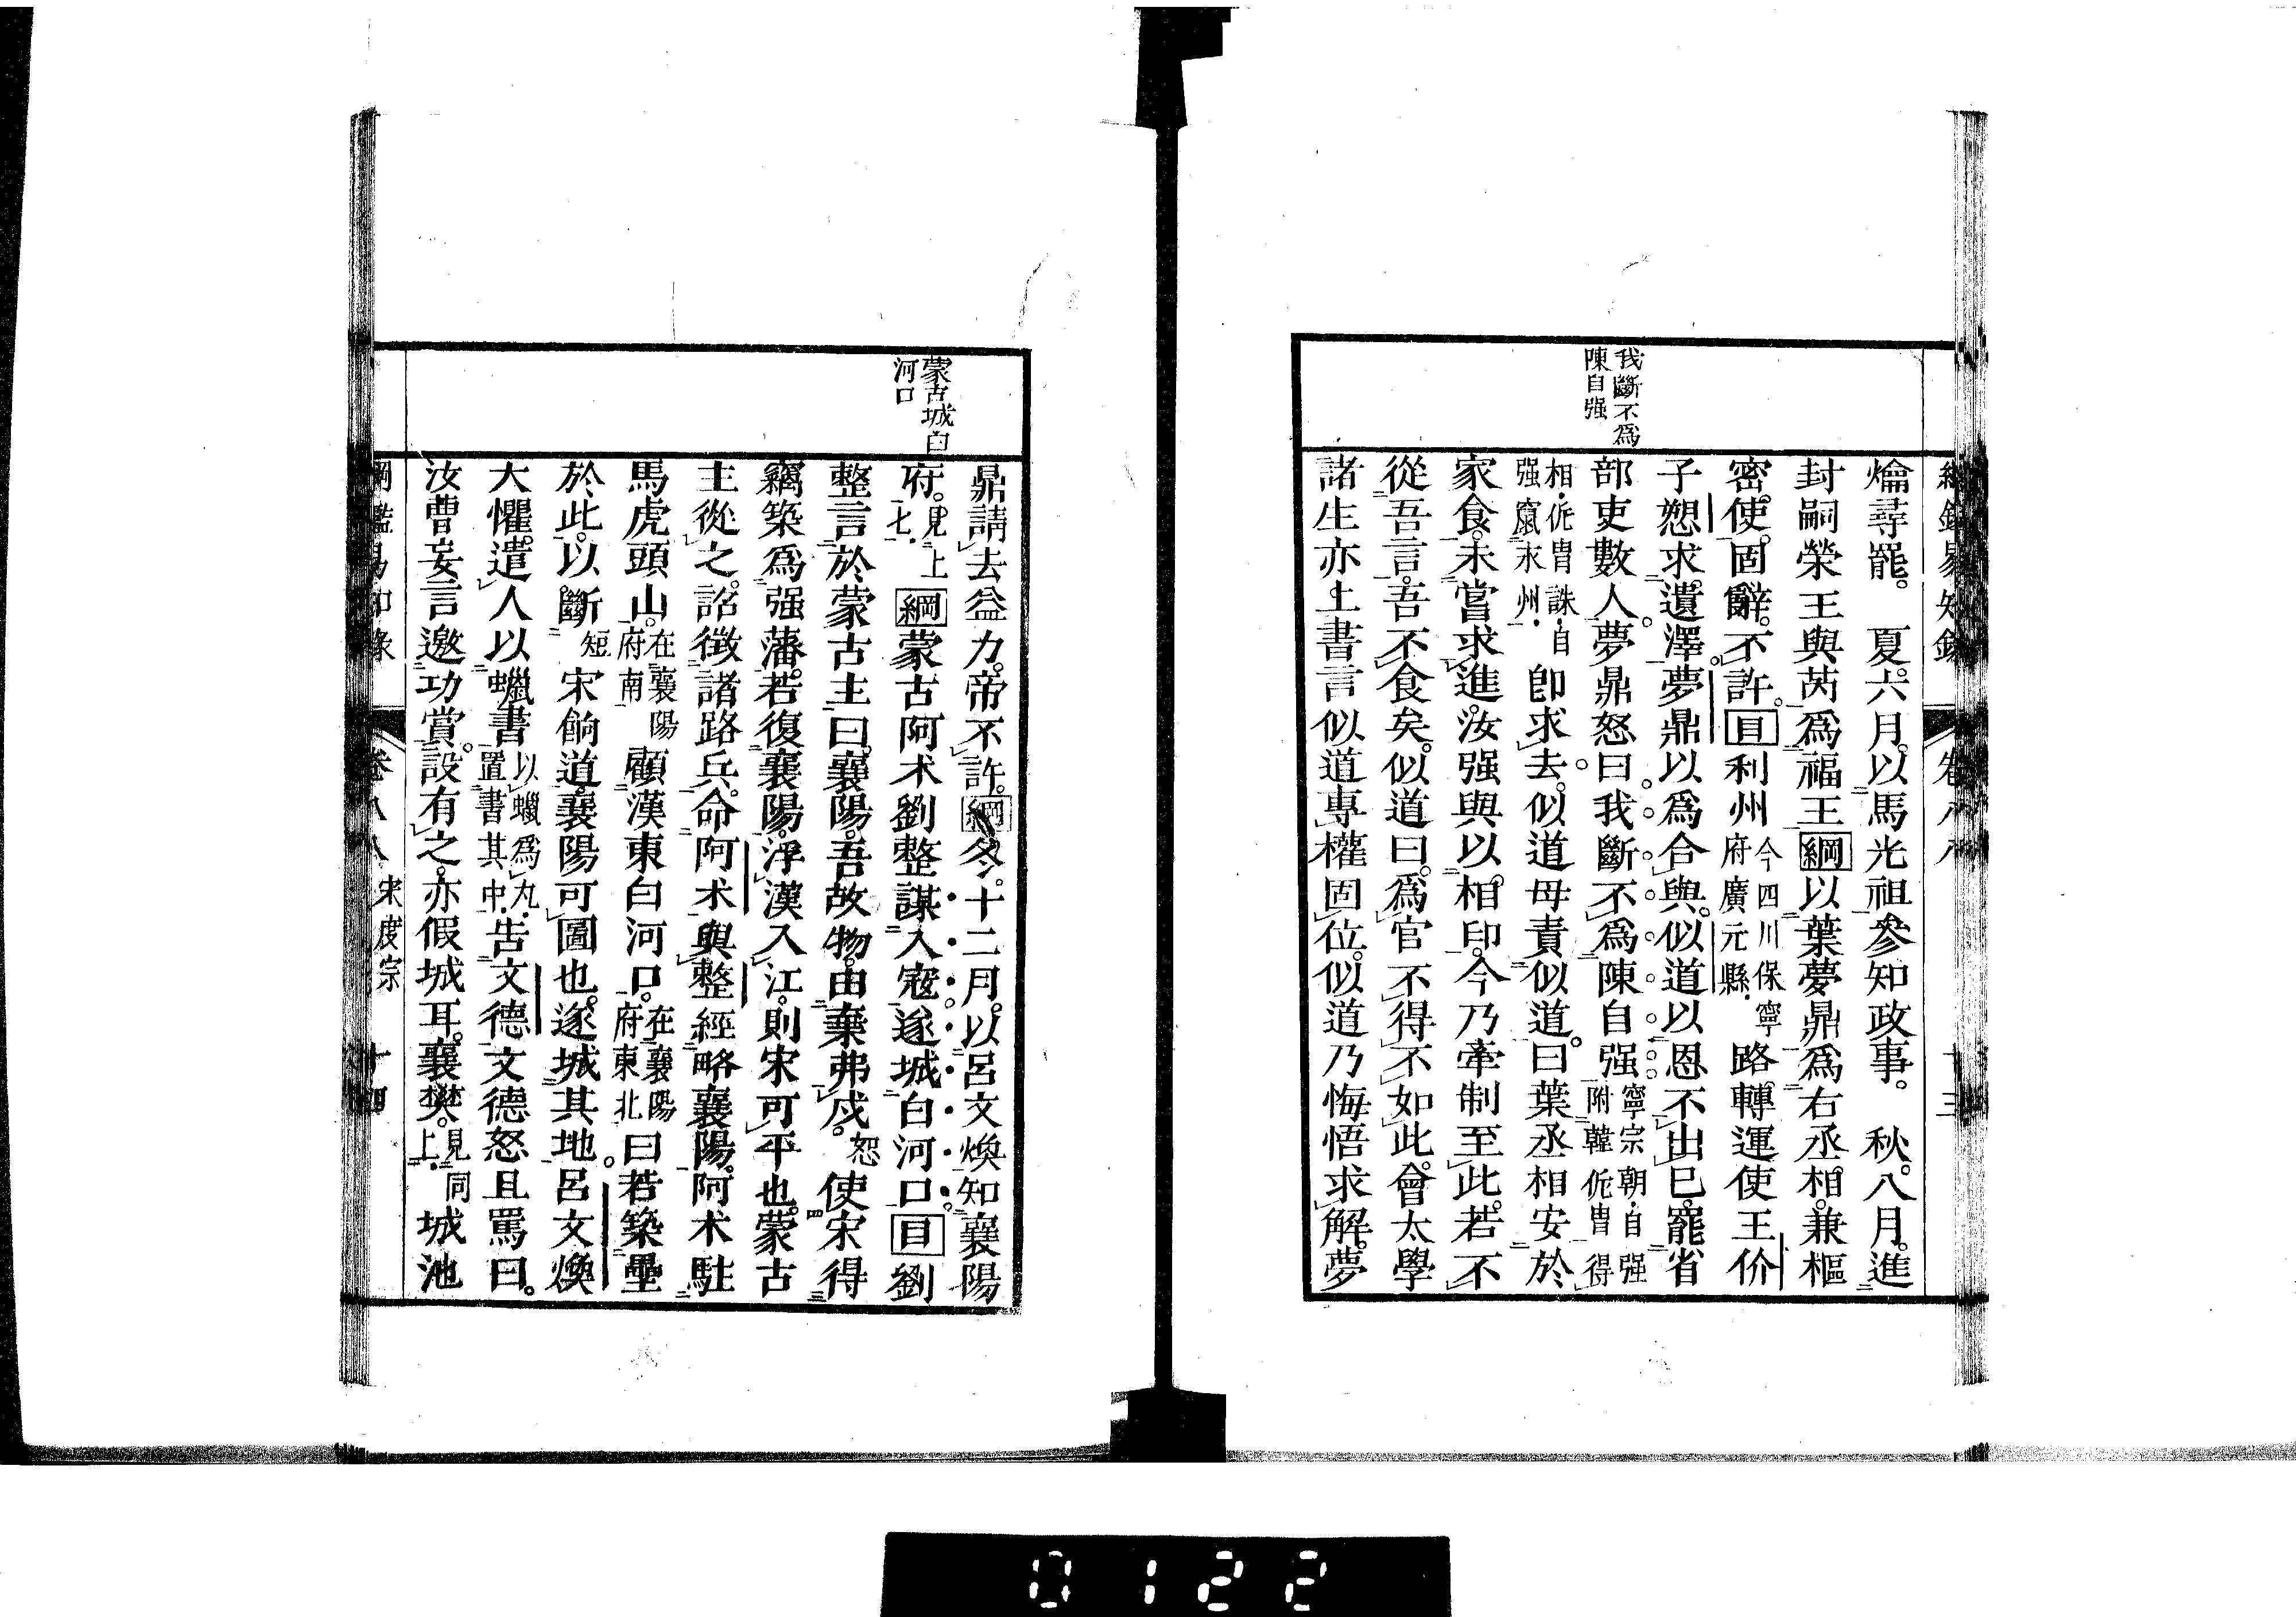 綱鑑易知錄 卷八八 十三
我斷不爲
陳自强
爚尋罷。 夏。六月。以馬光祖參知政事。 秋。八月。進
封嗣榮王與芮爲福王綱以葉夢鼎爲右丞相。兼樞
密使。固辭。不許。目利州今四川保寧府廣元縣。路轉運使王价
子愬求遺澤。夢鼎以爲合與。似道以恩不出己。罷省
部吏數人。夢鼎怒曰。我斷不爲陳自强寧宗朝。自强附韓侂胄得
相。侂胄誅。自强竄永州。卽求去。似道母責似道。曰葉丞相安於
家食。未嘗求進。汝强與以相印。今乃牽制至此。若不
從吾言。吾不食矣。似道曰。爲官不得不如此。會太學
諸生亦上書言似道專權固位。似道乃悔悟求解。夢
蒙古城白
河口
鼎請去益力。帝不許。綱冬。十二月。以呂文煥知襄陽
府。見上七。綱蒙古阿朮劉整謀入寇。遂城白河口。目劉
整言於蒙古主曰。襄陽。吾故物。由棄弗戍。恕使宋得
竊築爲强藩。若復襄陽。浮漢入江。則宋可平也。蒙古
主從之。詔徵諸路兵。命阿朮與整經略襄陽。阿朮駐
馬虎頭山。在襄陽府南顧漢東白河口。在襄陽府東北曰若築壘
於此。以斷短宋餉道。襄陽可圖也。遂城其地。呂文煥
大懼。遣人以蠟書以蠟爲丸。置書其中。告文德。文德怒且罵曰。
汝曹妄言邀功賞。設有之。亦假城耳。襄樊。見同上。城池
綱鑑易知錄 卷八八 宋度宗 十四
0122